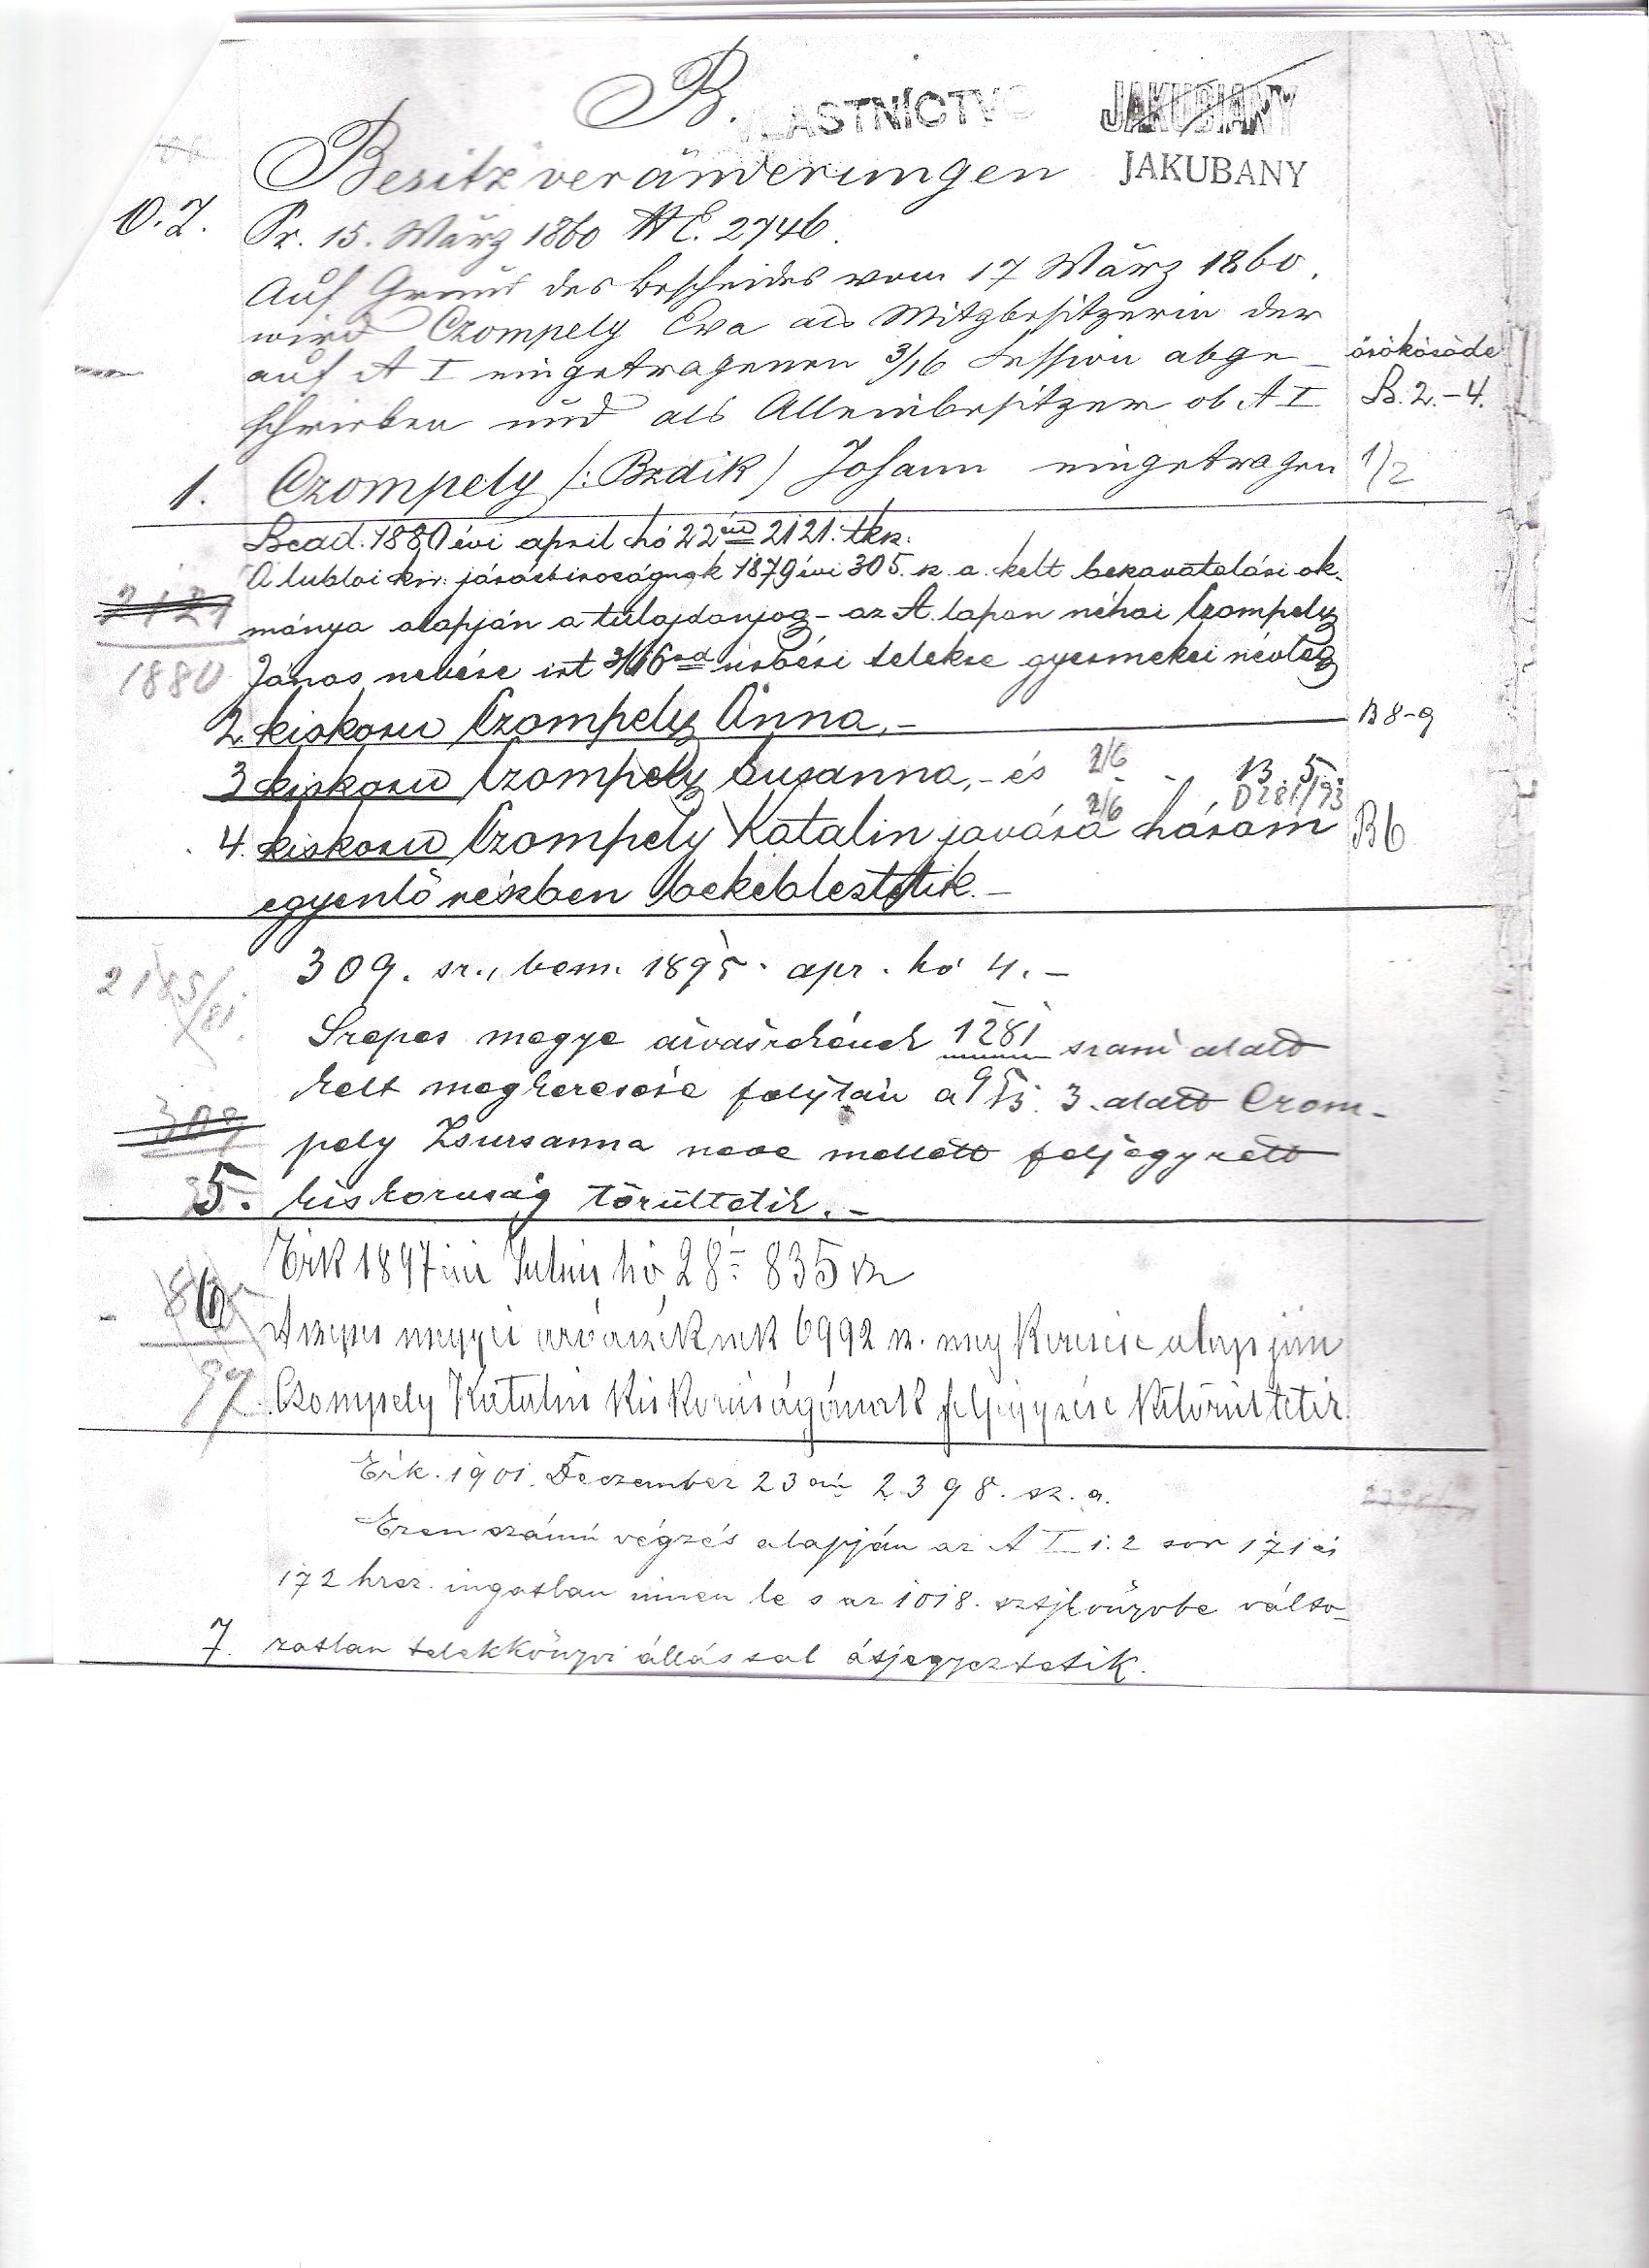 B. VLASTNÍCTVO JAKUBIANY
Besitzveränderungen JAKUBANY
O. Z. Pr. 15. März 1860 NE. 2746.
Auf Grund des Bescheides vom 17 März 1860.
wird Czompely Eva als Mitbesitzerin der
auf A I eingetragenen 3/16 Session abge-
schrieben und als Alleinbesitzer ob A I B. 2.-4.
1. Czompely /: Bzdik / Johann eingetragen 1/2
Bead. 1880 évi april hó 22én 2121. tkk.
A lublói kir. járásbiroságnak 1879 évi 305. sz. a. kelt bekavatalási ok-
2121 mánya alapján a tulajdonjog - az A. lapon néhai Czompely
1880 János nevére irt 3/16od úrbéri telekre gyermekei névleg
2 kiskorú Czompely Anna,- B 8-9
3 kiskorú Czompely Susanna,- és 2/6 B. 5.
2/6 D 281/93
4. kiskorú Czompely Katalin javára három B6
egyenlő részben bekebleztetik.-
309. sz., bem. 1895. apr. hó 4.-
2185/81. Szepes megye árvaszékének 1281 szám alatt
kelt megkeresése folytán a B. 3. alatt Czom-
309 pely Zsuzsanna neve mellett feljegyzett
95
5. kiskoruság töröltetik.-
Érk 1897 évi Julius hó 28án 835 sz
6 A szepes megyei árvaszéknek 6992 sz. meg keresése alapján
97 Czompely Katalin kiskoruságának feljegyzése kitöröltetik.
Érk. 1901. Deczember 23án 2398. sz. a.
Ezen számú végzés alapján az A I 1. 2 sor 171 és
172 hrsz. ingatlan innen le s az 1018. sztjkönyvbe válto-
7. zatlan telekkönyvi állással átjegyeztetik.